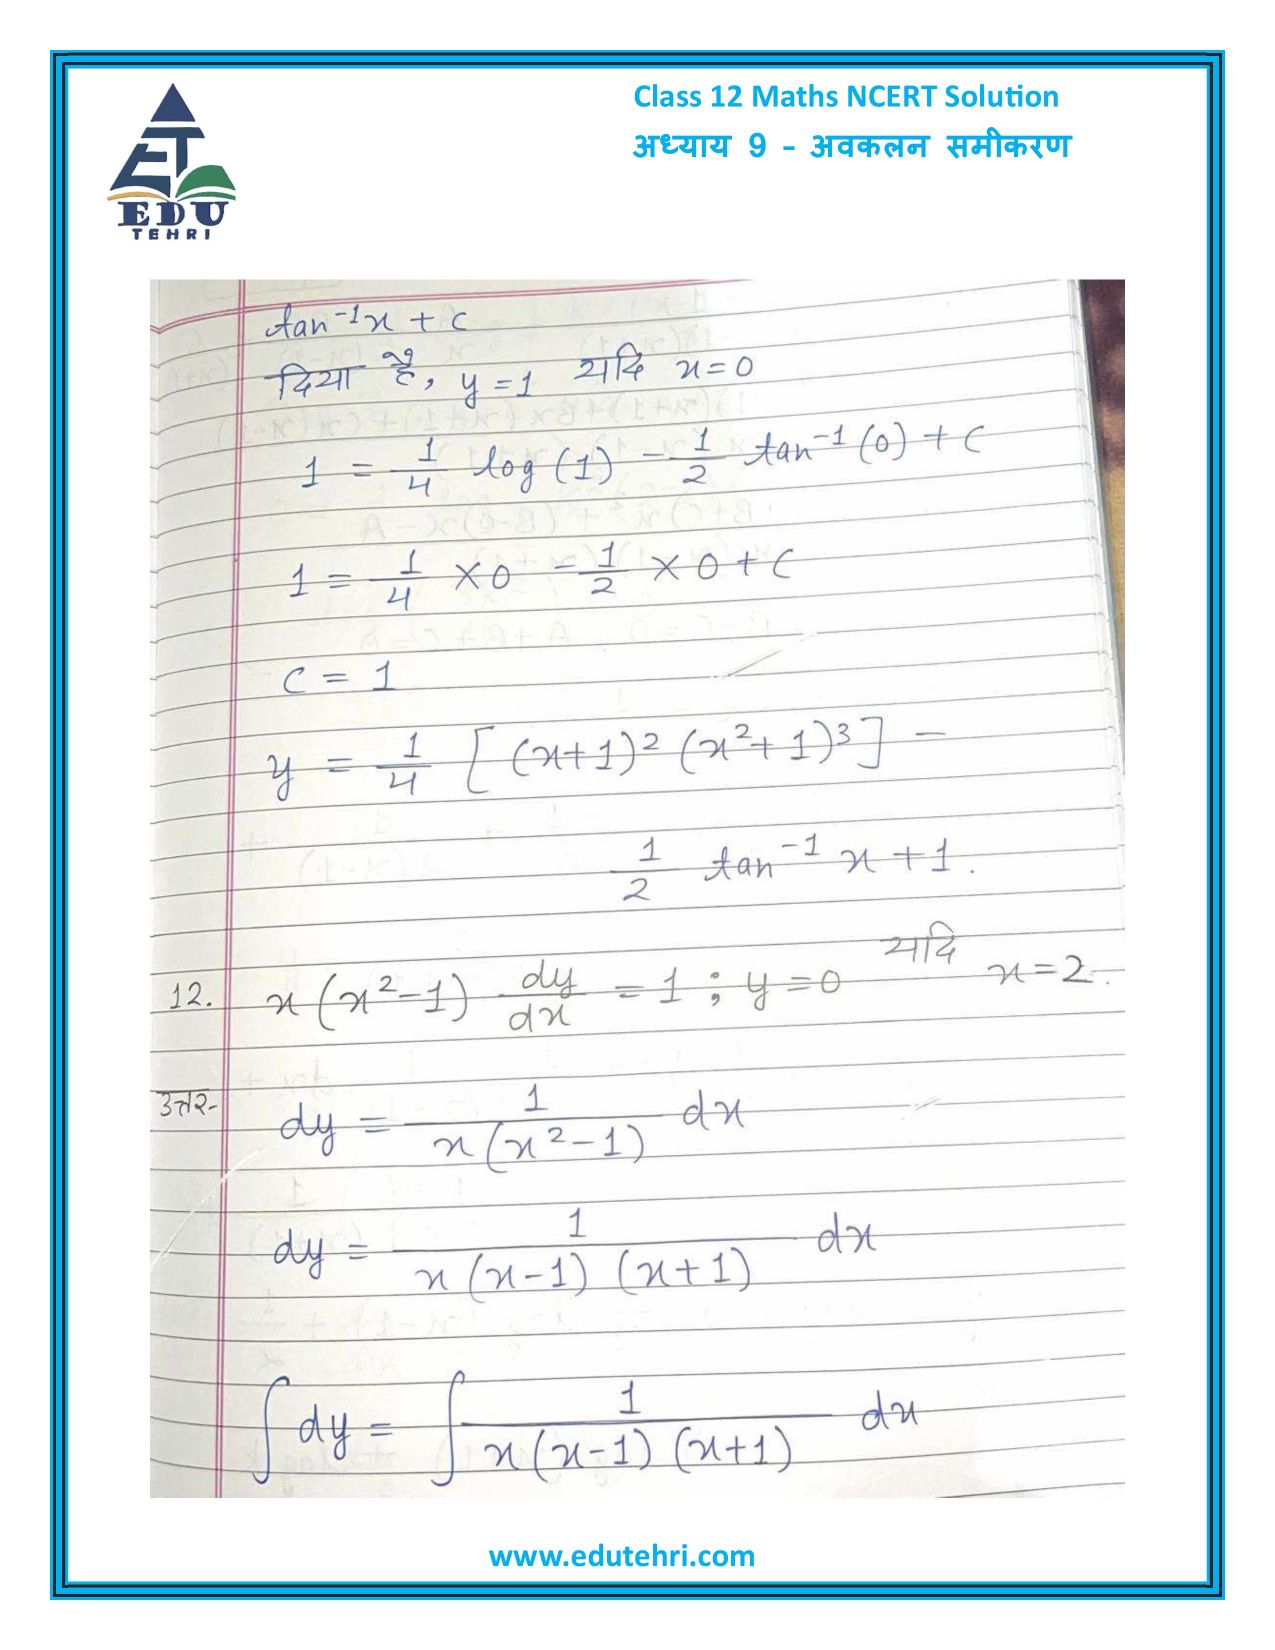 Class 12 Maths NCERT Solution
अध्याय 9 - अवकलन समीकरण
EDU
TEHRI
tan⁻¹x + c
दिया है, y = 1 यदि x = 0
1 = 1/4 log (1) - 1/2 tan⁻¹ (0) + C
1 = 1/4 × 0 - 1/2 × 0 + C
C = 1
y = 1/4 [(x+1)² (x²+1)³] -
1/2 tan⁻¹ x + 1.
12. x (x²-1) dy/dx = 1 ; y = 0 यदि x = 2.
उत्तर- dy = 1/x(x²-1) dx
dy = 1/x(x-1) (x+1) dx
∫ dy = ∫ 1/x(x-1) (x+1) dx
www.edutehri.com